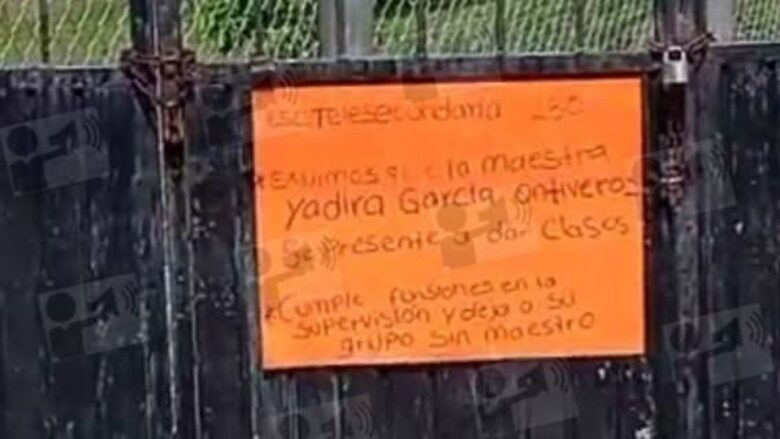 Esc. Telesecundaria 230
Exijimos que la maestra
Yadira García Ontiveros
Se presente a dar Clases
Cumple funsiones en la
supervisión y deja a su
grupo sin maestro